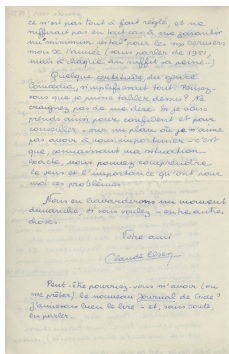 ce n'est pas tout à fait réglé, et ne
suffirait pas en tout cas à me garantir
un minimum vital pour les derniers
mois de l'année (sans parler de 1951,
mais à chaque an suffit sa peine...)
Quelque certitude du genre
simplifierait tout. Pensez-
vous que je puisse tabler dessus ? Ne
craignez pas de me dire. Si je vous
prends ainsi pour confident et pour
conseiller sur un plan où je n'aime
pas avoir à vous importuner - c'est
que, connaissant ma situation
exacte, vous pouvez comprendre
le sens et l'importance qu'ont pour
moi ces problèmes.
Nous en bavarderons un moment
dimanche, si vous voulez - entre autres
choses.
Votre ami
Claude
Peut-être pourriez-vous m'avoir (ou
me prêter) le nouveau Journal de Gide ?
J'aimerais bien le lire - et, sans doute,
en parler.